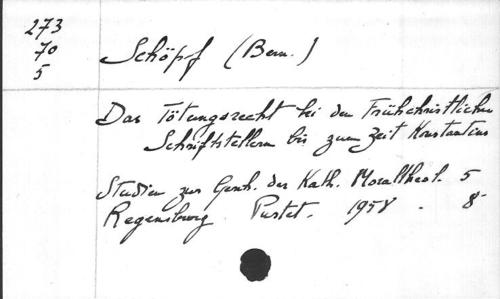 273
70
5
Schöpf (Bern.)
Das Tötungsrecht bei den Frühchristlichen
Schriftstellern bis zum Zeit Konstantins
Studien zur Gesch. der Kath. Moraltheol. 5
Regensburg. Pustet. 1958. 8°